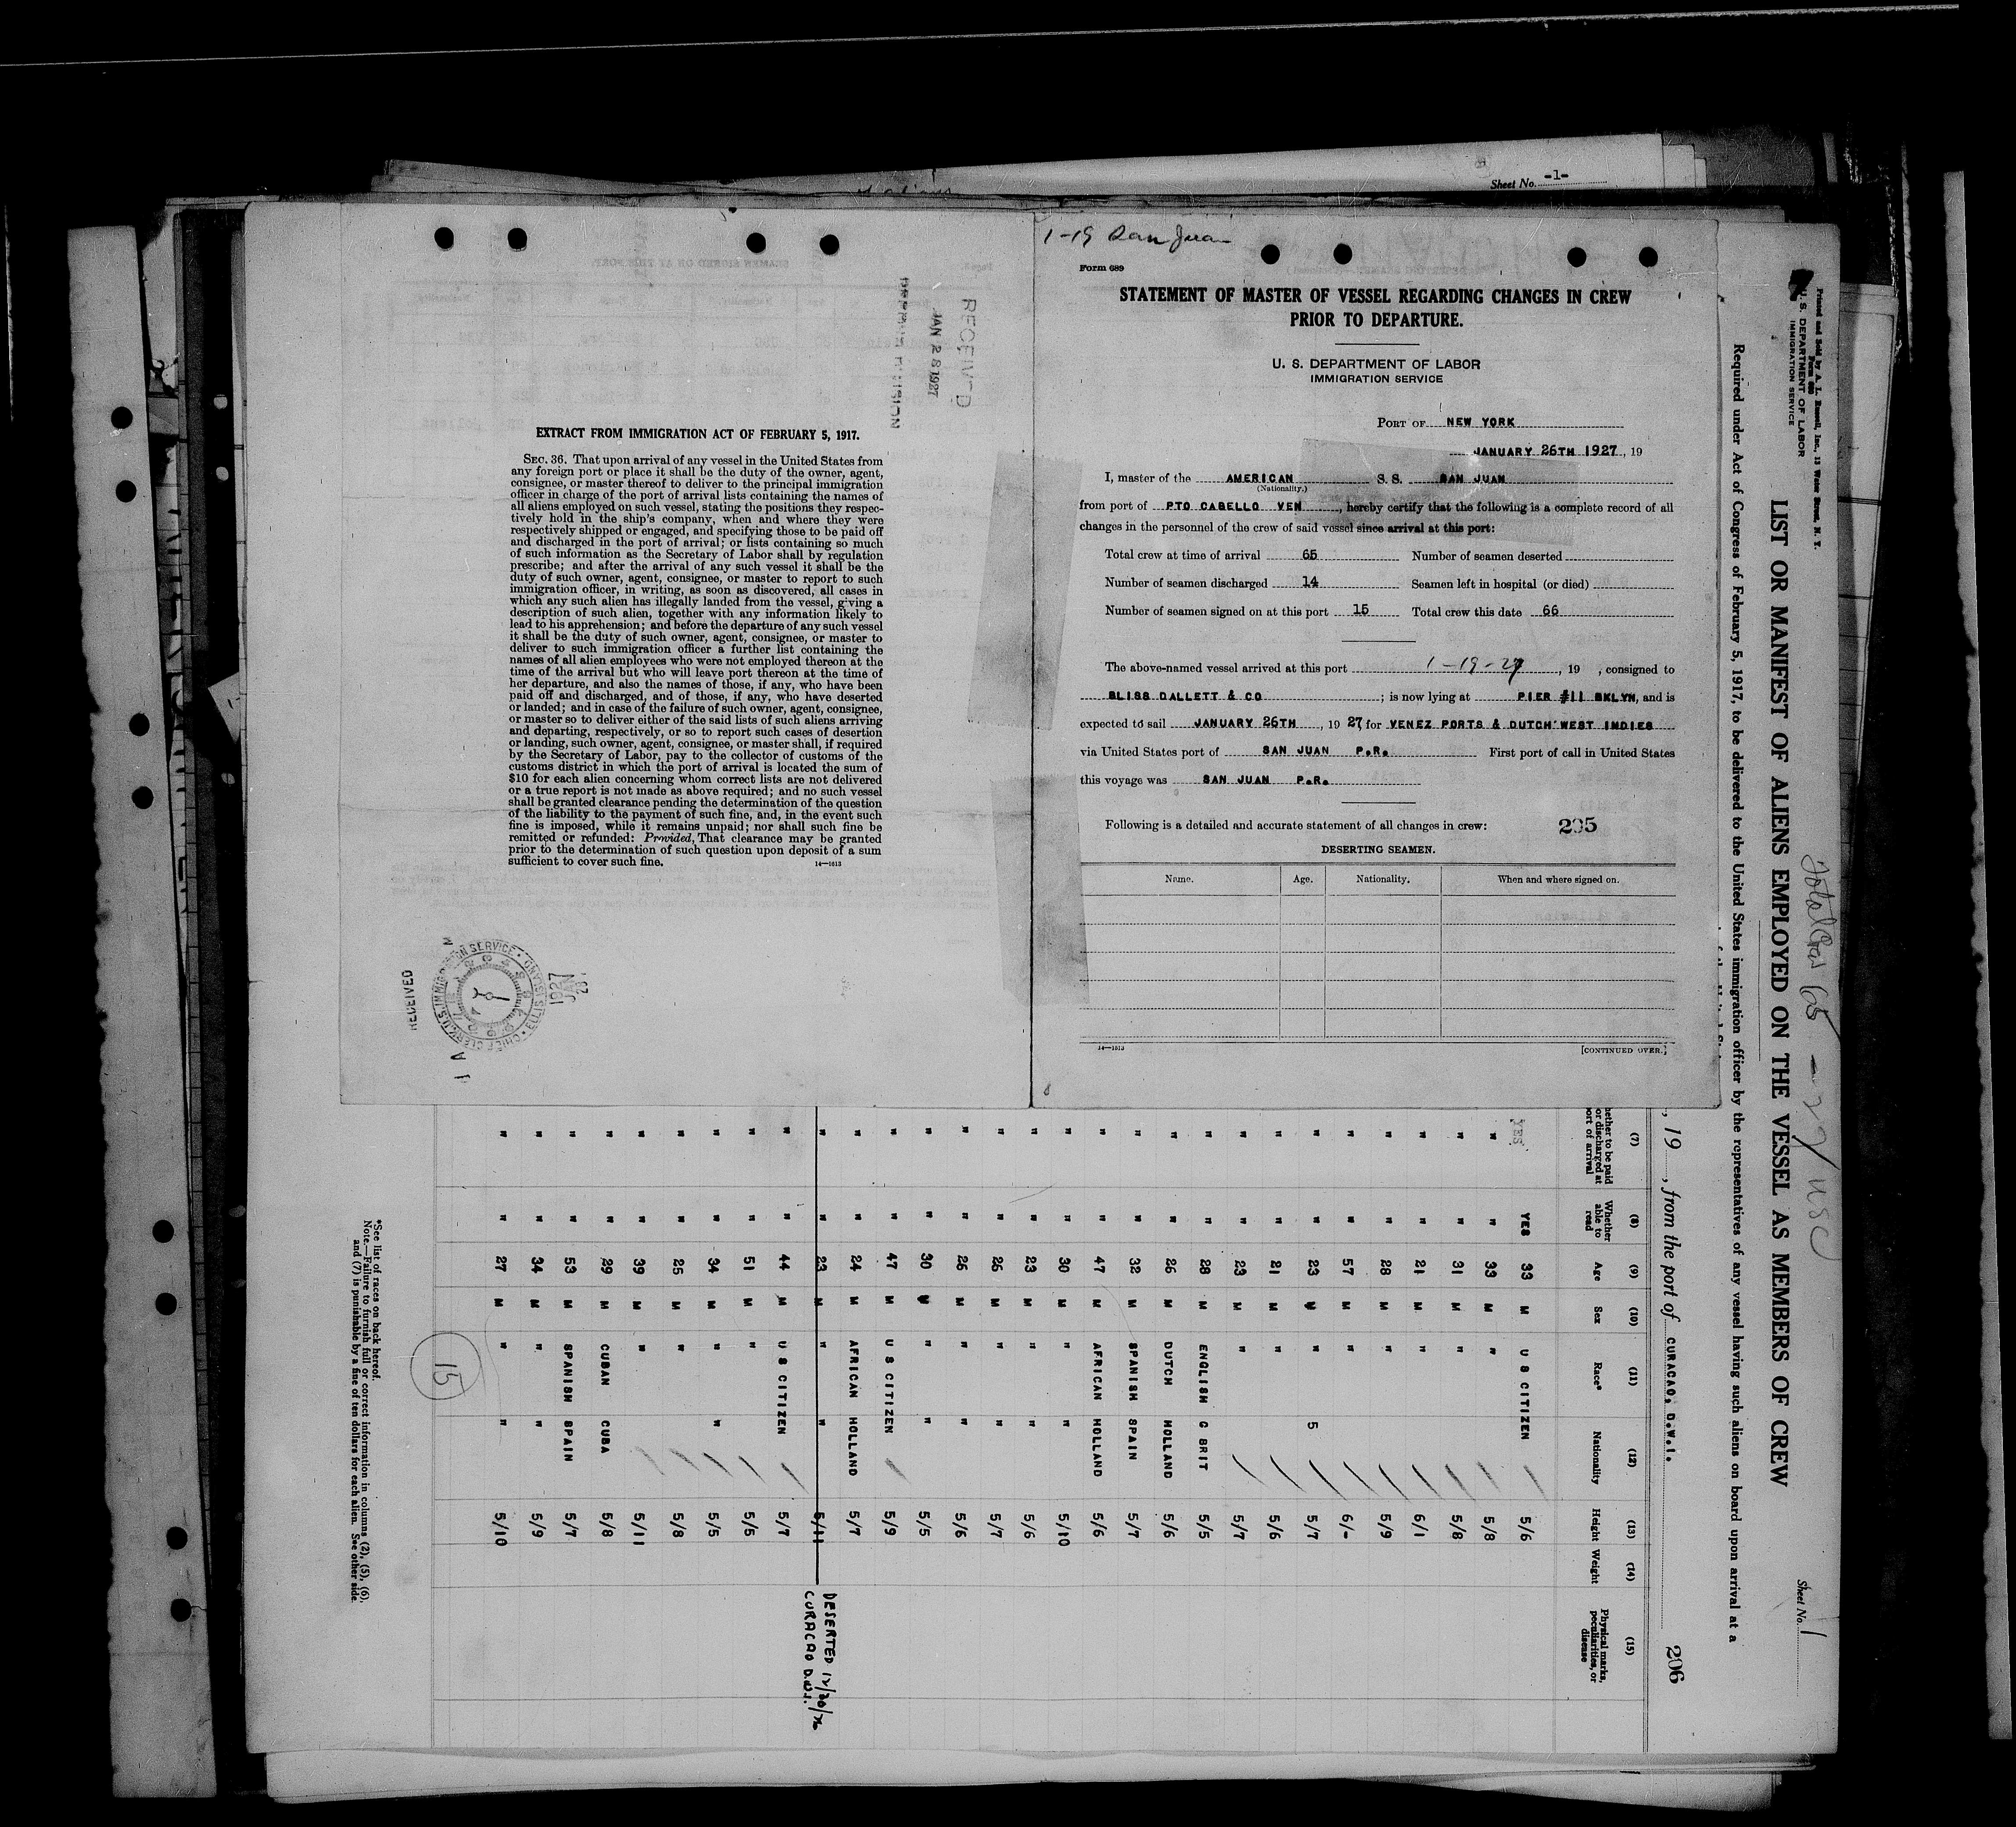 Sheet No. -1-
1-19 San Juan
Form 689
STATEMENT OF MASTER OF VESSEL REGARDING CHANGES IN CREW
PRIOR TO DEPARTURE.
U. S. DEPARTMENT OF LABOR
IMMIGRATION SERVICE
PORT OF NEW YORK
JANUARY 26TH 1927, 19
I, master of the AMERICAN S. S. SAN JUAN
(Nationality.)
from port of PTO CABELLO VEN, hereby certify that the following is a complete record of all
changes in the personnel of the crew of said vessel since arrival at this port:
Total crew at time of arrival 65 Number of seamen deserted
Number of seamen discharged 14 Seamen left in hospital (or died)
Number of seamen signed on at this port 15 Total crew this date 66
The above-named vessel arrived at this port 1-19-27, 19 , consigned to
BLISS DALLETT & CO ; is now lying at PIER #11 BKLYN, and is
expected to sail JANUARY 26TH, 19 27, for VENEZ PORTS & DUTCH WEST INDIES
via United States port of SAN JUAN P.R. First port of call in United States
this voyage was SAN JUAN P.R.
Following is a detailed and accurate statement of all changes in crew: 205
DESERTING SEAMEN.
Name. Age. Nationality. When and where signed on.
14—1513 [CONTINUED OVER.]
RECEIVED
JAN 28 1927
DIVISION
EXTRACT FROM IMMIGRATION ACT OF FEBRUARY 5, 1917.
SEC. 36. That upon arrival of any vessel in the United States from
any foreign port or place it shall be the duty of the owner, agent,
consignee, or master thereof to deliver to the principal immigration
officer in charge of the port of arrival lists containing the names of
all aliens employed on such vessel, stating the positions they respec-
tively hold in the ship's company, when and where they were
respectively shipped or engaged, and specifying those to be paid off
and discharged in the port of arrival; or lists containing so much
of such information as the Secretary of Labor shall by regulation
prescribe; and after the arrival of any such vessel it shall be the
duty of such owner, agent, consignee, or master to report to such
immigration officer, in writing, as soon as discovered, all cases in
which any such alien has illegally landed from the vessel, giving a
description of such alien, together with any information likely to
lead to his apprehension; and before the departure of any such vessel
it shall be the duty of such owner, agent, consignee, or master to
deliver to such immigration officer a further list containing the
names of all alien employees who were not employed thereon at the
time of the arrival but who will leave port thereon at the time of
her departure, and also the names of those, if any, who have been
paid off and discharged, and of those, if any, who have deserted
or landed; and in case of the failure of such owner, agent, consignee,
or master so to deliver either of the said lists of such aliens arriving
and departing, respectively, or so to report such cases of desertion
or landing, such owner, agent, consignee, or master shall, if required
by the Secretary of Labor, pay to the collector of customs of the
customs district in which the port of arrival is located the sum of
$10 for each alien concerning whom correct lists are not delivered
or a true report is not made as above required; and no such vessel
shall be granted clearance pending the determination of the question
of the liability to the payment of such fine, and, in the event such
fine is imposed, while it remains unpaid; nor shall such fine be
remitted or refunded: Provided, That clearance may be granted
prior to the determination of such question upon deposit of a sum
sufficient to cover such fine. 14—1513
RECEIVED
CHIEF CLERK, U.S. IMMIGRATION SERVICE · ELLIS ISLAND
1927
JAN
28
Printed and Sold by A. L. Russell, Inc., 15 Water Street, N. Y.
Form 680
U. S. DEPARTMENT OF LABOR
IMMIGRATION SERVICE
Sheet No. 1
Total Crew 65 - 29 USC
LIST OR MANIFEST OF ALIENS EMPLOYED ON THE VESSEL AS MEMBERS OF CREW
Required under Act of Congress of February 5, 1917, to be delivered to the United States immigration officer by the representatives of any vessel having such aliens on board upon arrival at a
, 19 , from the port of CURACAO, D.W.I. 206
(7) (8) (9) (10) (11) (12) (13) (14) (15)
Whether able to read Age Sex Race* Nationality Height Weight Physical marks, peculiarities, or disease
YES YES 33 M U S CITIZEN 5/6
" " 33 M " 5/8
" " 31 M " 5/8
" " 21 M " 6/1
" " 28 M " 5/9
" " 57 M " 6/-
" " 23 M " 5 5/7
" " 21 M " 5/6
" " 23 M " 5/7
" " 28 M ENGLISH G BRIT 5/5
" " 26 M DUTCH HOLLAND 5/6
" " 32 M SPANISH SPAIN 5/7
" " 47 M AFRICAN HOLLAND 5/6
" " 30 M " " 5/10
" " 23 M " " 5/6
" " 26 M " " 5/7
" " 26 M " " 5/6
" " 30 M " " 5/5
" " 47 M U S CITIZEN 5/9
" " 24 M AFRICAN HOLLAND 5/7
" " 23 M " " 5/11 DESERTED 12/30/26 CURACAO D.W.I.
" " 44 M U S CITIZEN 5/7
" " 51 M " 5/6
" " 34 M " " 5/5
" " 25 M " 5/8
" " 39 M " 5/11
" " 29 M CUBAN CUBA 5/8
" " 53 M SPANISH SPAIN 5/7
" " 34 M " " 5/9
" " 27 M " " 5/10
15
*See list of races on back hereof.
Note.—Failure to furnish full or correct information in columns (2), (5), (6),
and (7) is punishable by a fine of ten dollars for each alien. See other side.